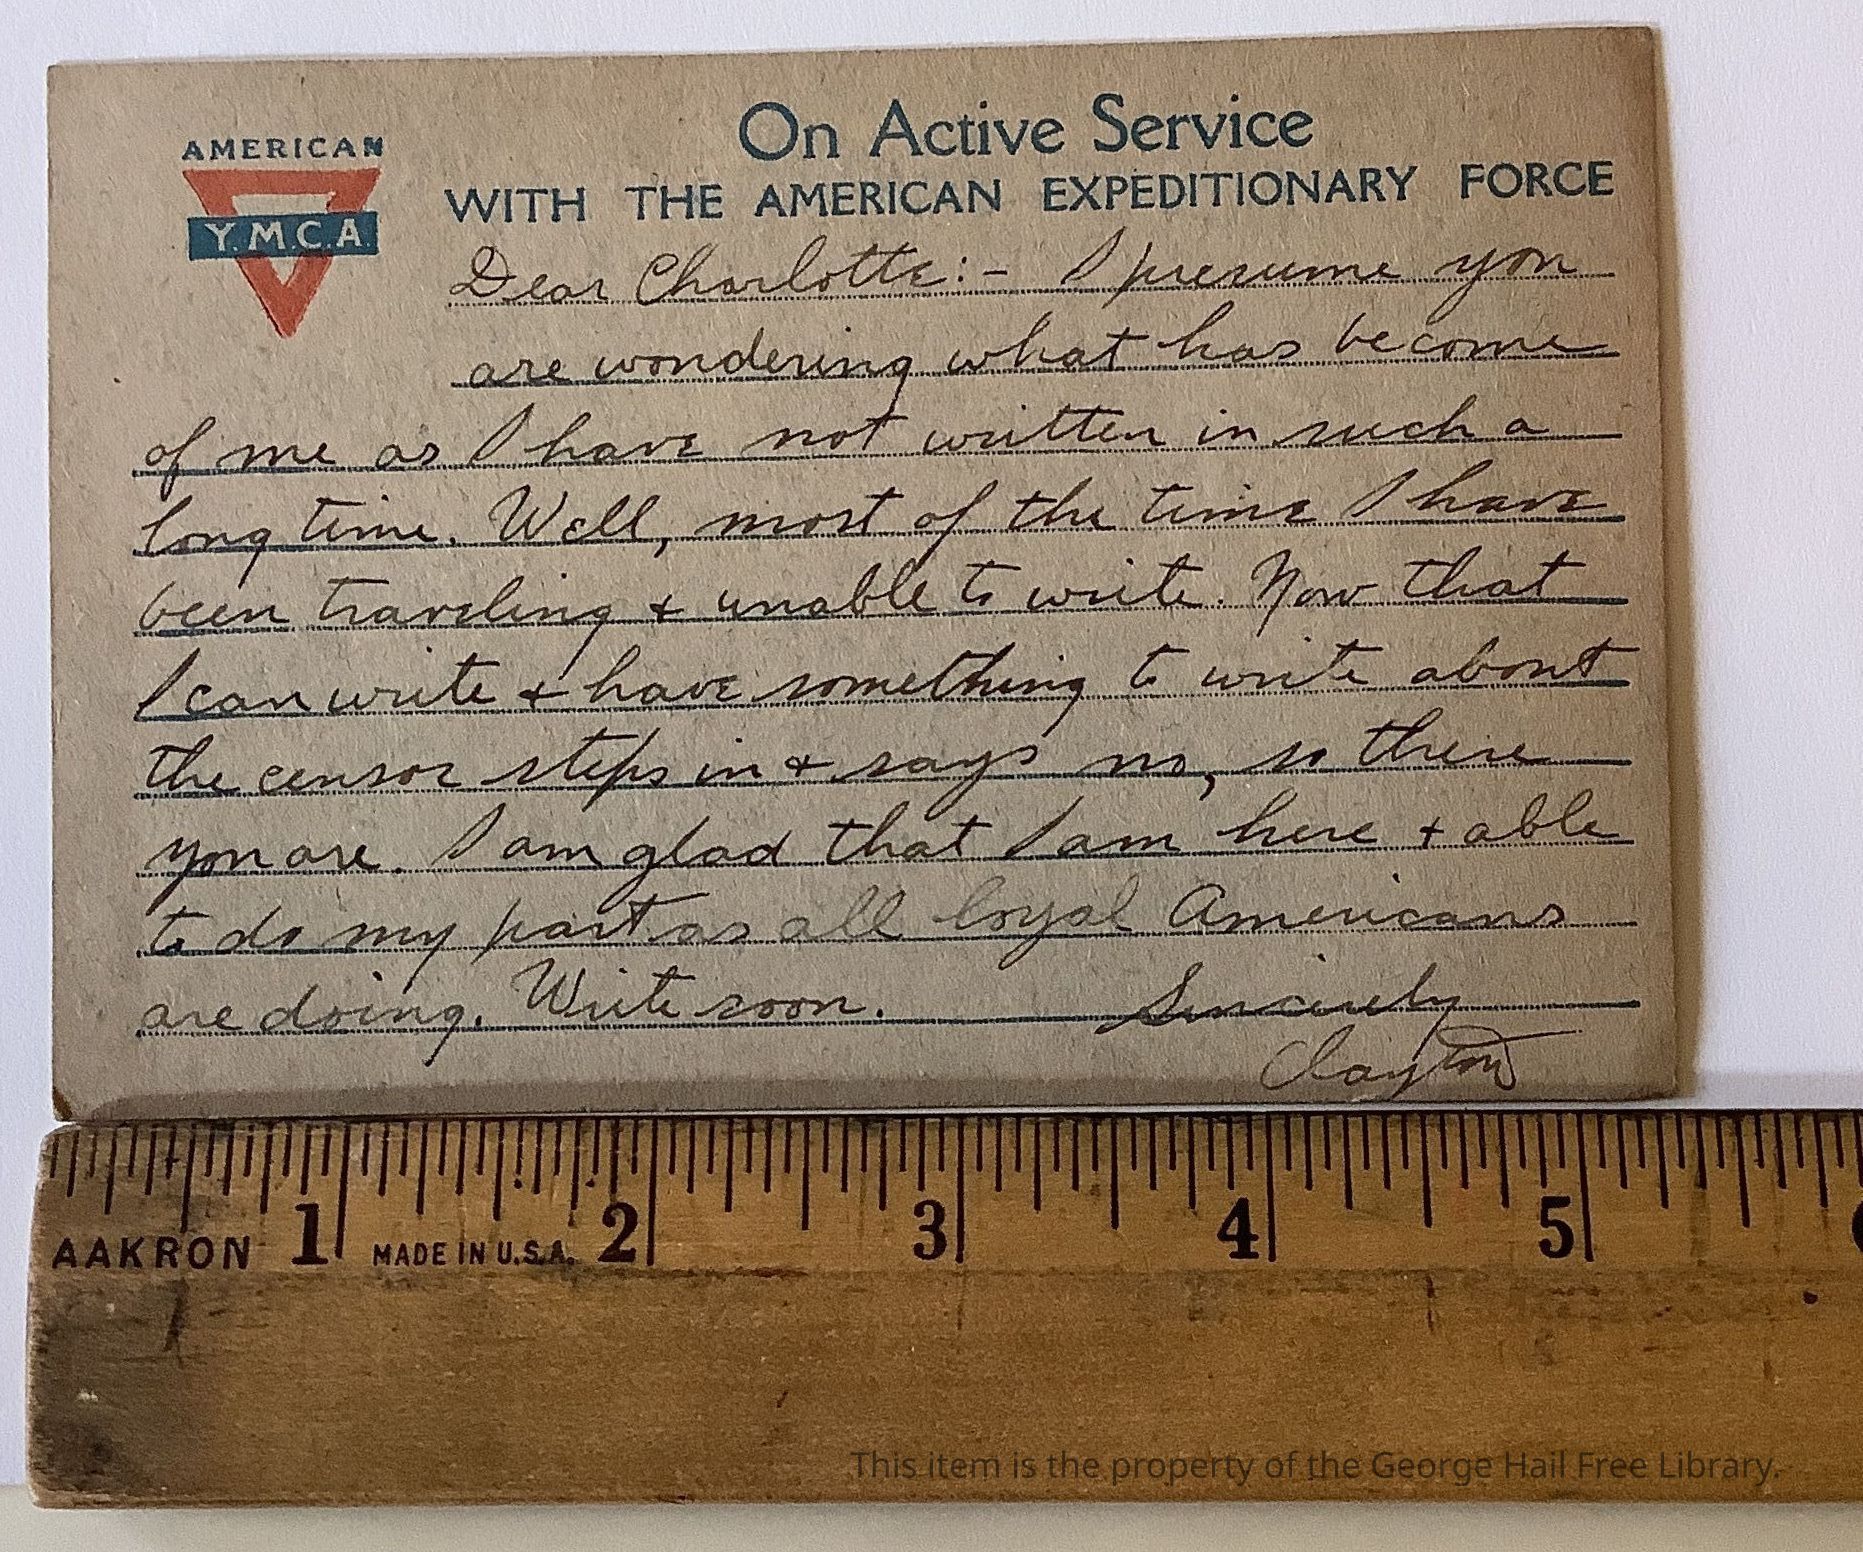 AMERICAN
Y.M.C.A.
On Active Service
WITH THE AMERICAN EXPEDITIONARY FORCE
Dear Charlotte:- I presume you
are wondering what has become
of me as I have not written in such a
long time. Well, most of the time I have
been traveling & unable to write. Now that
I can write & have something to write about
the censor steps in & says no, so there
you are. I am glad that I am here & able
to do my part as all loyal Americans
are doing. Write soon. Sincerely
Clayton
1 2 3 4 5
AAKRON MADE IN U.S.A.
This item is the property of the George Hail Free Library.